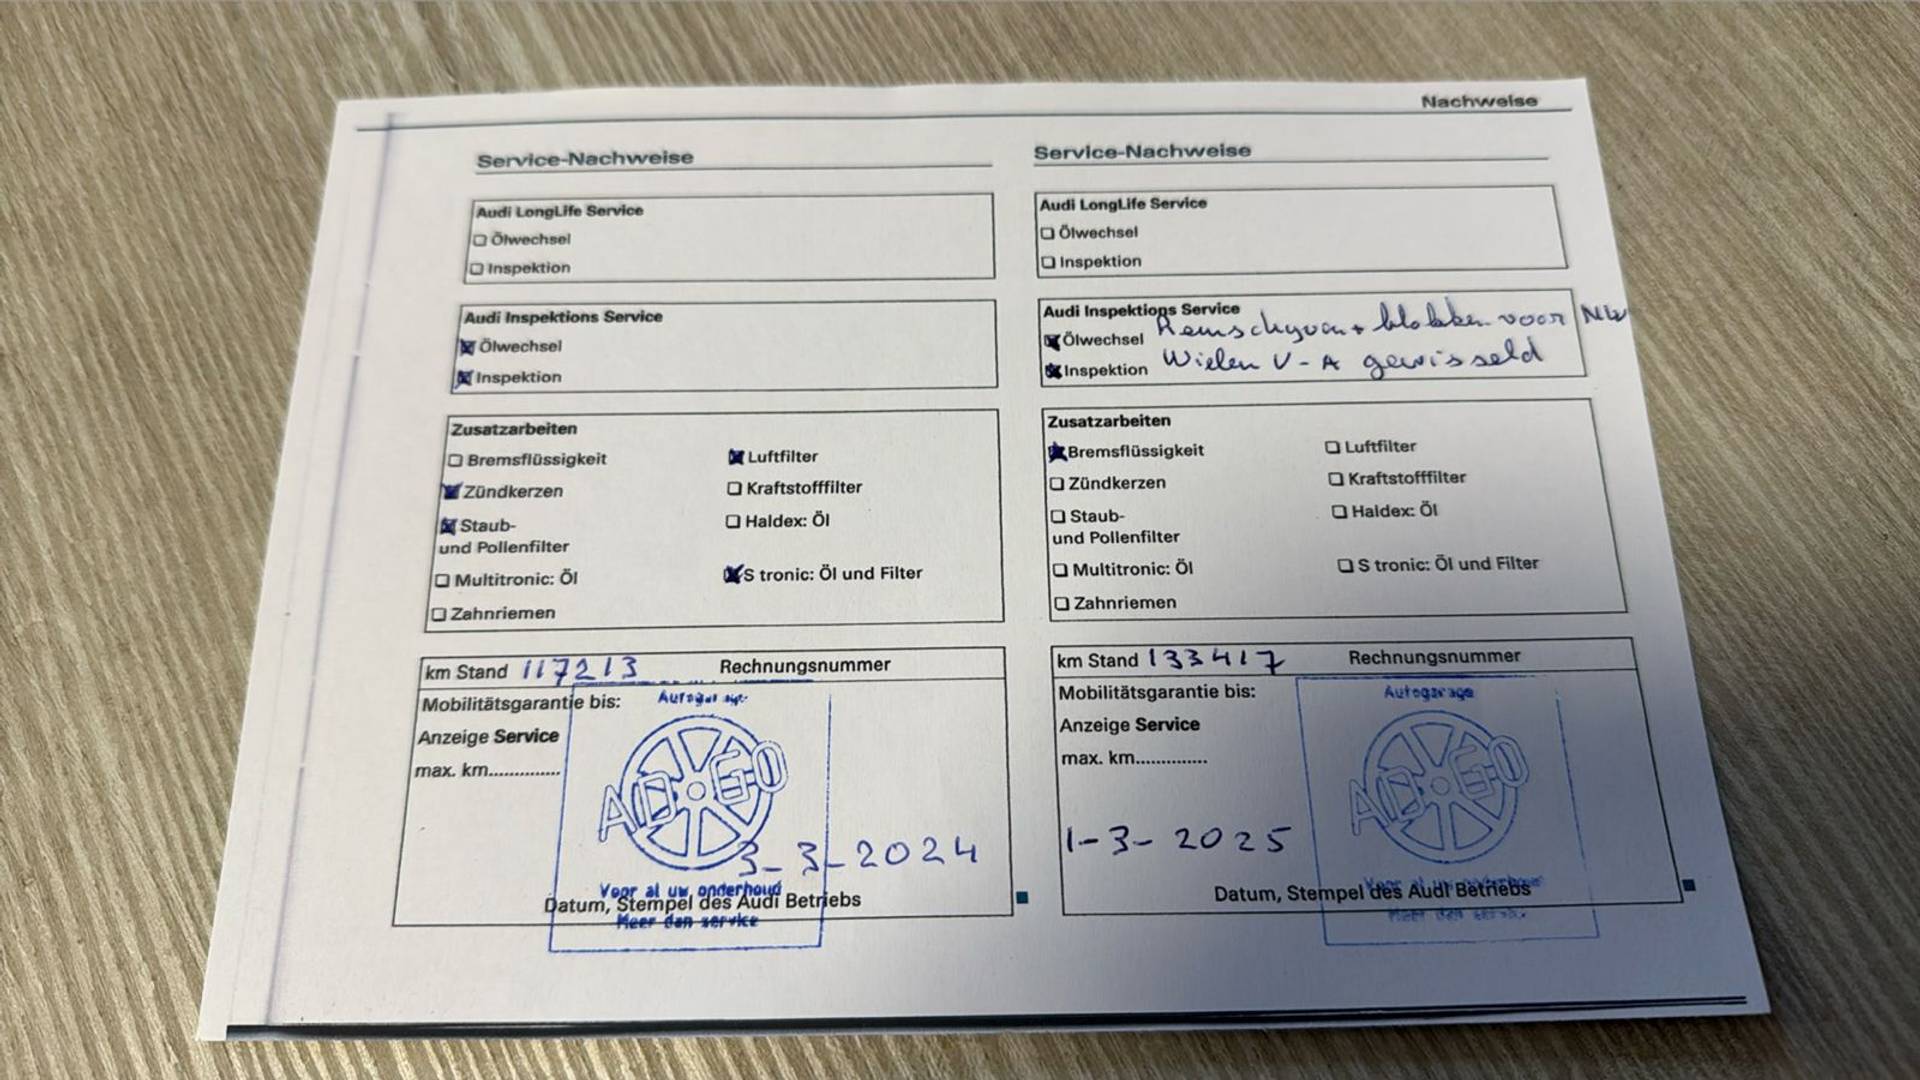 Nachweise
Service-Nachweise
Audi LongLife Service
Ölwechsel
Inspektion
Audi Inspektions Service
Ölwechsel
Inspektion
Zusatzarbeiten
Bremsflüssigkeit
Luftfilter
Zündkerzen
Kraftstofffilter
Staub-
und Pollenfilter
Haldex: Öl
Multitronic: Öl
S tronic: Öl und Filter
Zahnriemen
km Stand 117213 Rechnungsnummer
Mobilitätsgarantie bis:
Anzeige Service
max. km..............
Autogarage
AD GO
3-3-2024
Voor al uw onderhoud
Datum, Stempel des Audi Betriebs
Meer dan service
Service-Nachweise
Audi LongLife Service
Ölwechsel
Inspektion
Audi Inspektions Service
Ölwechsel Remschyven + blokken voor NW
Inspektion Wielen V-A gewisseld
Zusatzarbeiten
Bremsflüssigkeit
Luftfilter
Zündkerzen
Kraftstofffilter
Staub-
und Pollenfilter
Haldex: Öl
Multitronic: Öl
S tronic: Öl und Filter
Zahnriemen
km Stand 133417 Rechnungsnummer
Mobilitätsgarantie bis:
Anzeige Service
max. km..............
Autogarage
AD GO
1-3-2025
Voor al uw onderhoud
Datum, Stempel des Audi Betriebs
Meer dan service